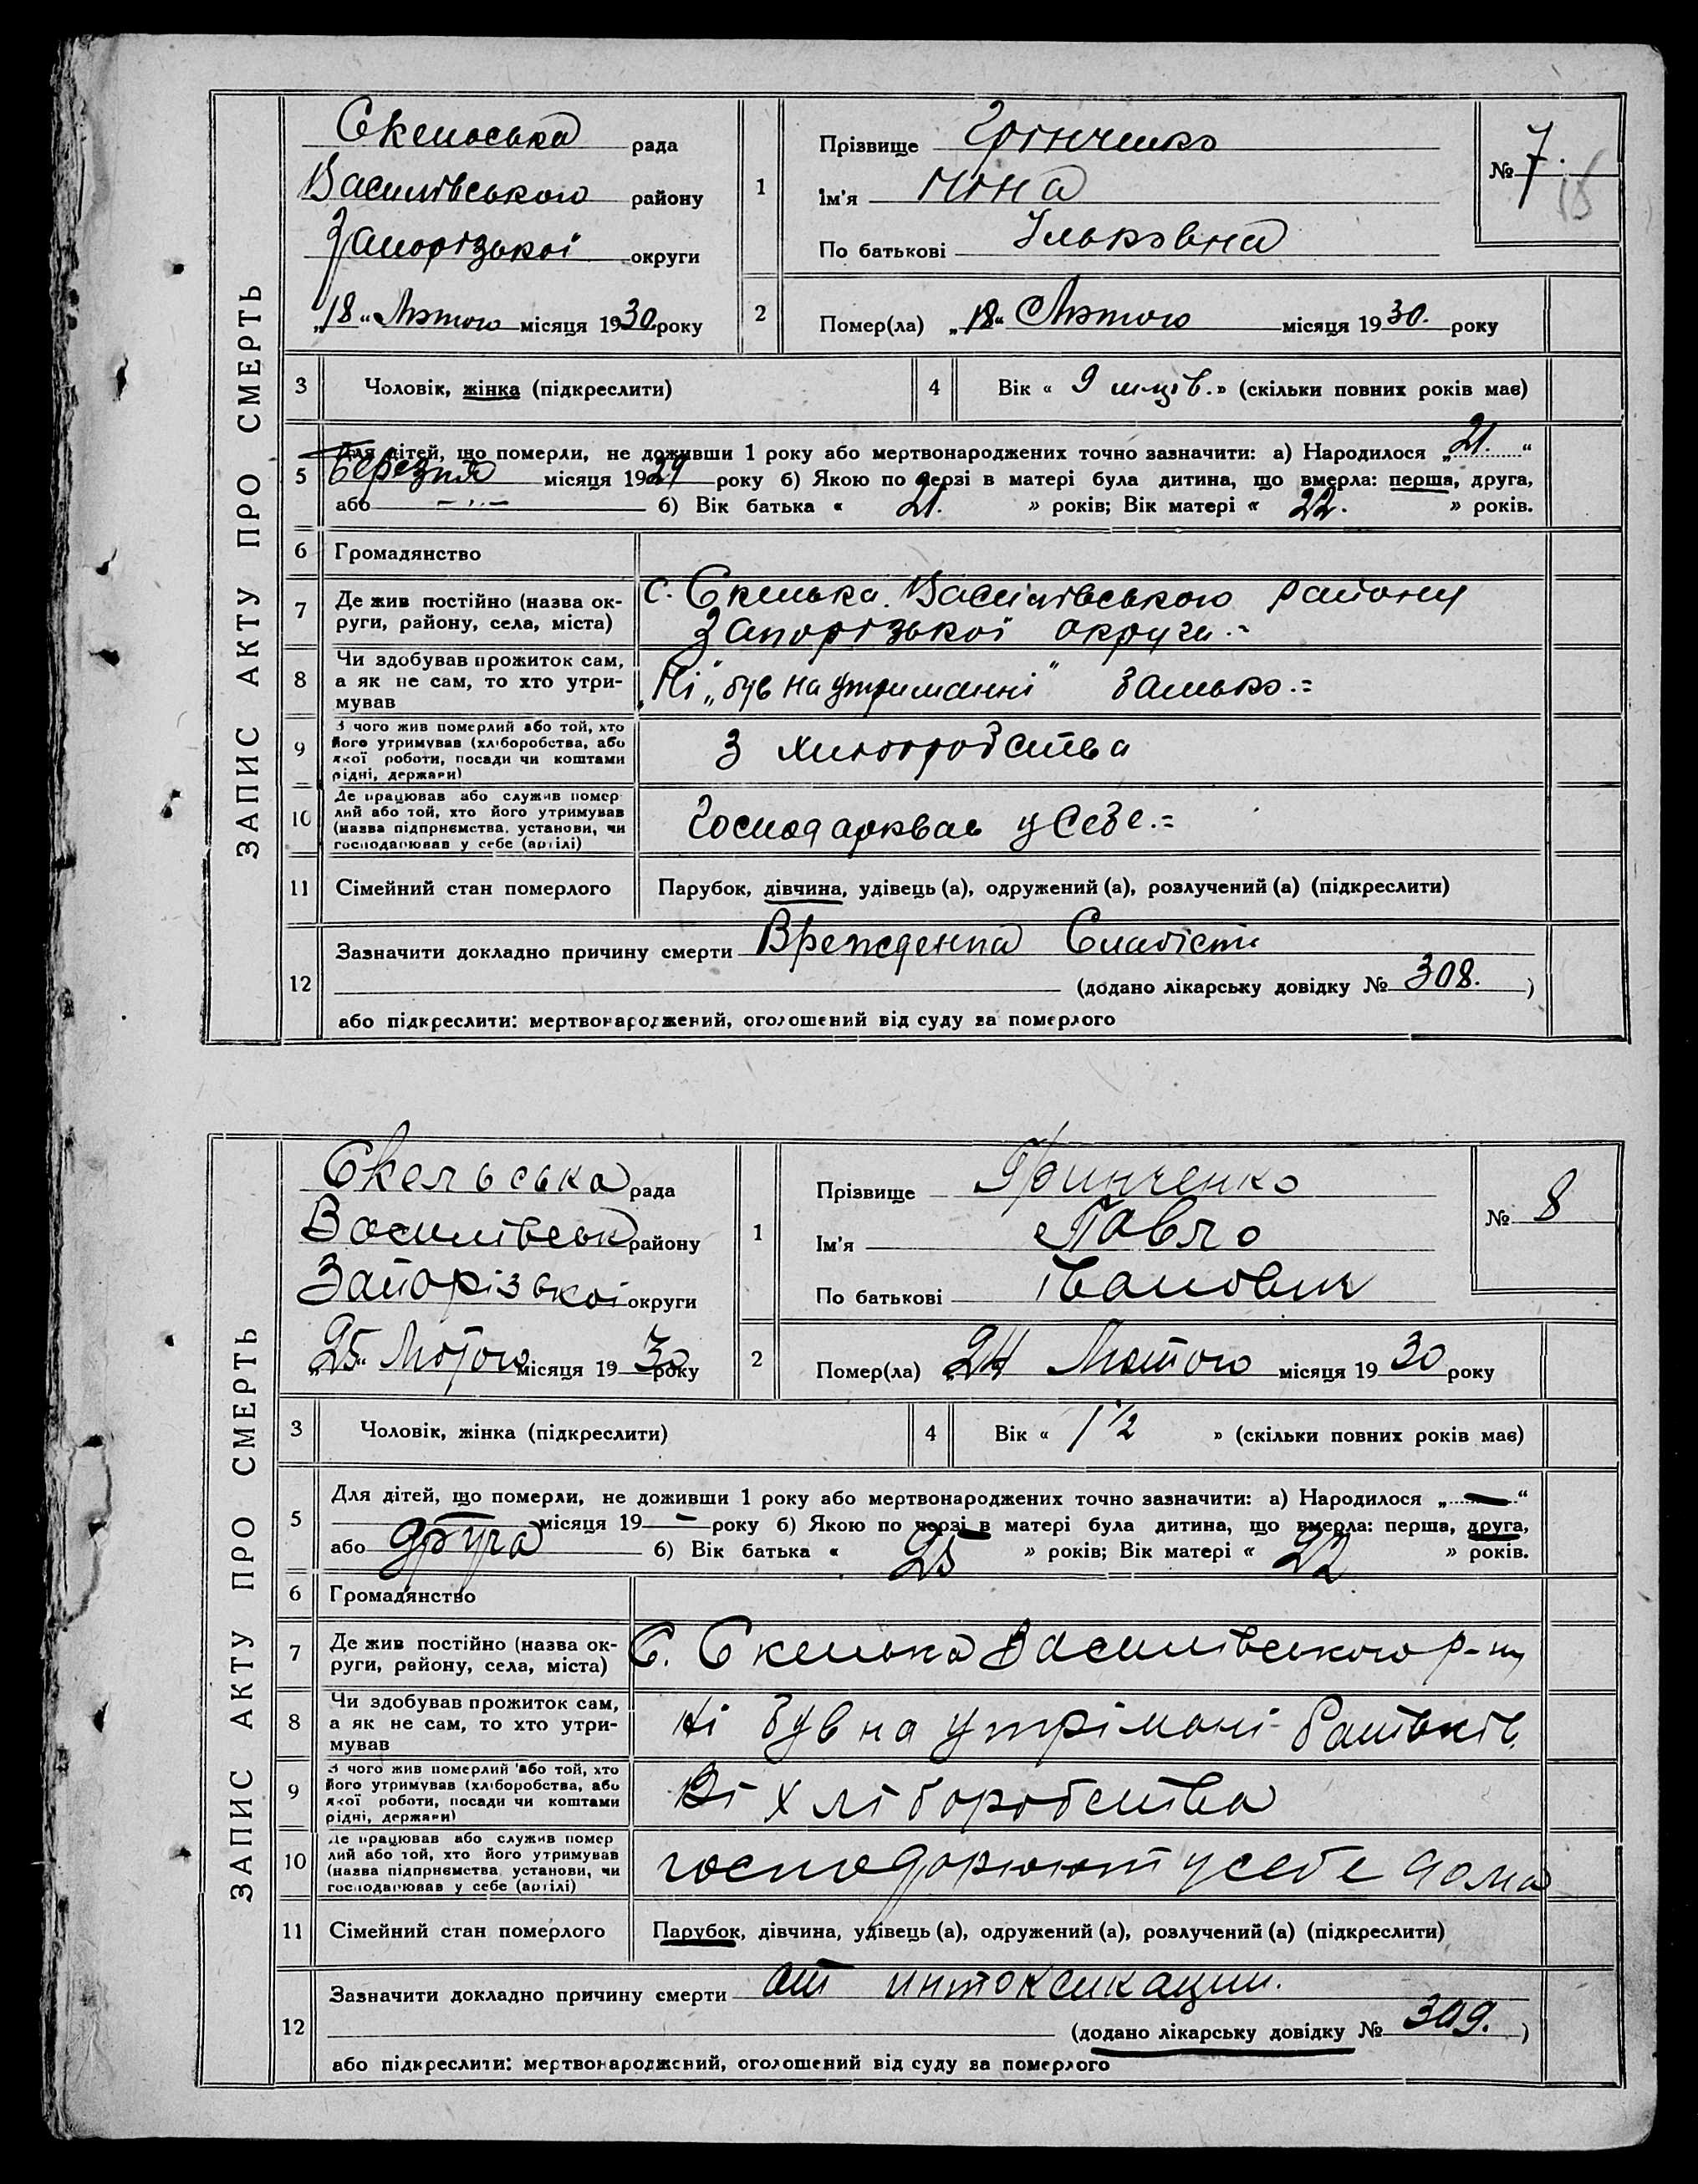 ЗАПИС АКТУ ПРО СМЕРТЬ
Скельоська рада
Василівського району
Запорізької округи
„18“ Лютого місяця 1930 року
1
Прізвище Грінченко
Ім'я Ніна
По батькові Ількова
№ 7.
18
2
Помер(ла) „18“ Лютого місяця 1930. року
3 Чоловік, жінка (підкреслити)
4 Вік « 9 міців.» (скільки повних років має)
5 Для дітей, що померли, не доживши 1 року або мертвонароджених точно зазначити: а) Народилося „21.“
Березня місяця 1929 року б) Якою по черзі в матері була дитина, що вмерла: перша, друга,
або — б) Вік батька « 21. » років; Вік матері « 22. » років.
6 Громадянство
7 Де жив постійно (назва ок-
руги, району, села, міста)
с. Скелька. Василівського району
Запорізької округи.=
8 Чи здобував прожиток сам,
а як не сам, то хто утри-
мував
„Ні „був на утриманні“ батько.=
9 З чого жив померлий або той, хто
його утримував (хліборобства, або
якої роботи, посади чи коштами
рідні, держави)
З хліборобства
10 Де працював або служив помер
лий або той, хто його утримував
(назва підприємства, установи, чи
господарював у себе (артілі)
Господарював у себе.=
11 Сімейний стан померлого
Парубок, дівчина, удівець (а), одружений (а), розлучений (а) (підкреслити)
12 Зазначити докладно причину смерти Врежденна Слабість
(додано лікарську довідку № 308. )
або підкреслити: мертвонароджений, оголошений від суду за померлого
ЗАПИС АКТУ ПРО СМЕРТЬ
Скельська рада
Василівськ району
Запорізької округи
„25“ Лютого місяця 1930 року
1
Прізвище Гринченко
Ім'я Павло
По батькові Іванович
№ 8
2
Помер(ла) „24 Лютого місяця 1930 року
3 Чоловік, жінка (підкреслити)
4 Вік « 1 1/2 » (скільки повних років має)
5 Для дітей, що померли, не доживши 1 року або мертвонароджених точно зазначити: а) Народилося „—“
місяця 19 — року б) Якою по черзі в матері була дитина, що вмерла: перша, друга,
або друга б) Вік батька « 25 » років; Вік матері « 22 » років.
6 Громадянство
7 Де жив постійно (назва ок-
руги, району, села, міста)
С. Скелька Василівського р-ну
8 Чи здобував прожиток сам,
а як не сам, то хто утри-
мував
Ні був на утрімані батьків.
9 З чого жив померлий або той, хто
його утримував (хліборобства, або
якої роботи, посади чи коштами
рідні, держави)
Зі хліборобства
10 Де працював або служив помер
лий або той, хто його утримував
(назва підприємства, установи, чи
господарював у себе (артілі)
господорюют у себе дома
11 Сімейний стан померлого
Парубок, дівчина, удівець (а), одружений (а), розлучений (а) (підкреслити)
12 Зазначити докладно причину смерти от интоксикации.
(додано лікарську довідку № 309. )
або підкреслити: мертвонароджений, оголошений від суду за померлого